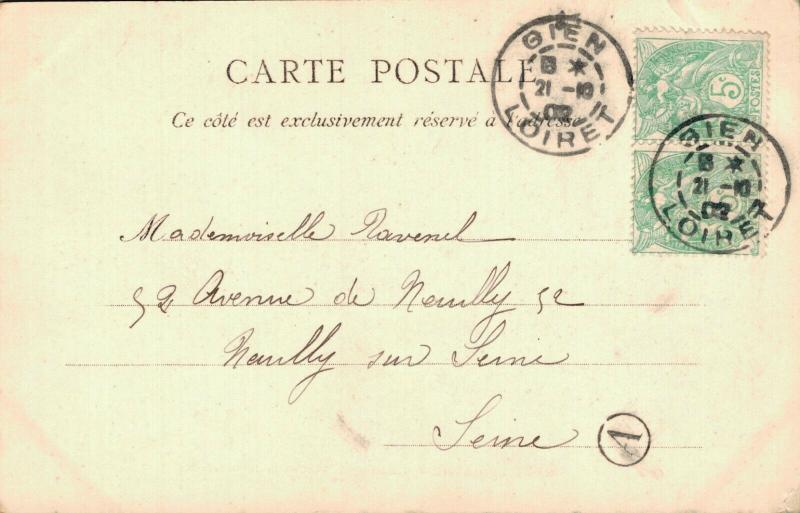 CARTE POSTALE
Ce côté est exclusivement réservé à l'adresse
GIEN
21 -10
02
LOIRET
5c
POSTES
GIEN
21 -10
02
LOIRET
Mademoiselle Ravenel
52 Avenue de Neuilly 52
Neuilly sur Seine
Seine